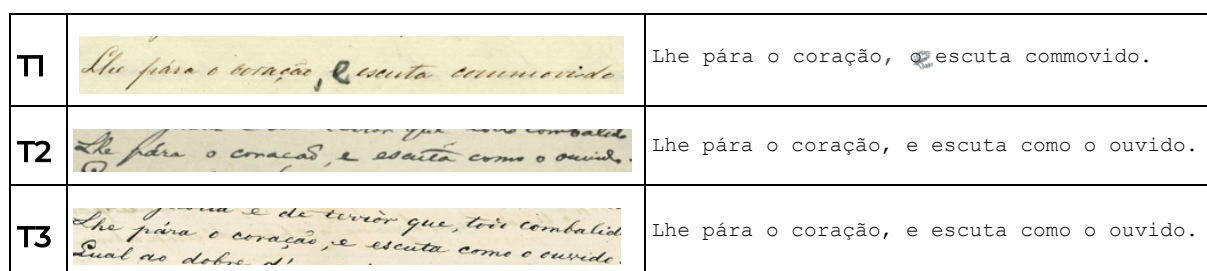 T1
Lhe pára o coração, e escuta commovido
Lhe pára o coração, escuta commovido.
T2
que todo combalido
Lhe pára o coração, e escuta como o ouvido.
Lhe pára o coração, e escuta como o ouvido.
T3
e de terrór que, todo combalid
Lhe pára o coração, e escuta como o ouvido.
Qual ao dobre d'
Lhe pára o coração, e escuta como o ouvido.